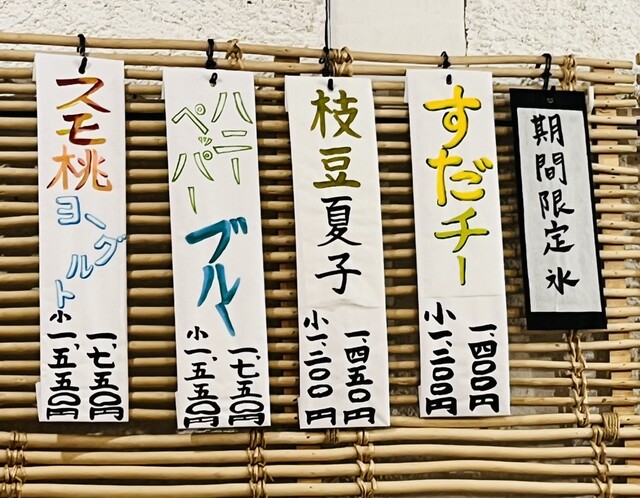 期間限定氷
すだチー
一、四〇〇円
小一、二〇〇円
枝豆夏子
一、四五〇円
小一、二〇〇円
ハニー
ペッパー
ブルー
一、七五〇円
小一、五五〇円
スモ桃
ヨーグルト
一、七五〇円
小一、五五〇円